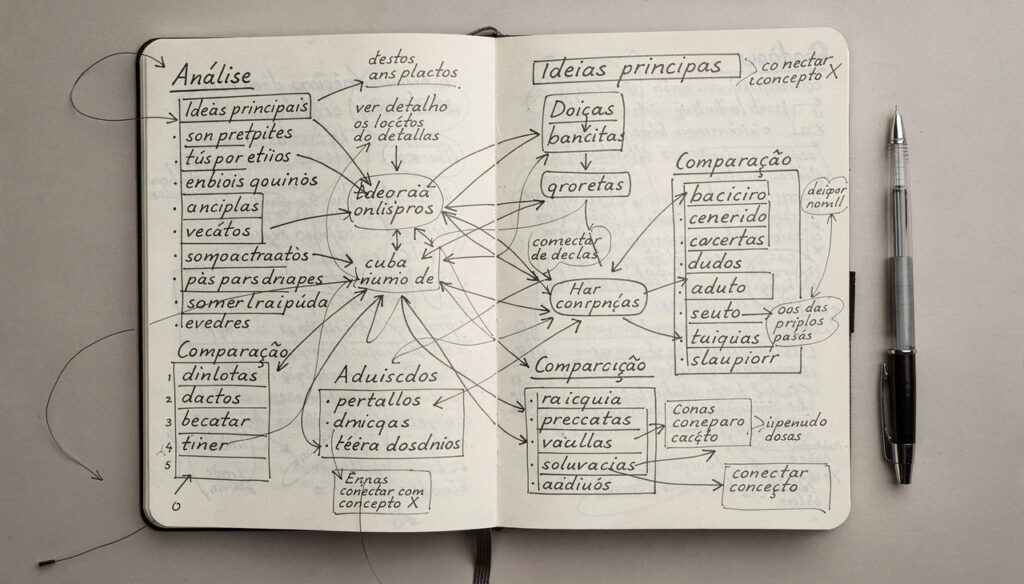 Análise
Ideas principais
son pretpites
túspor etiios
enbiois gouinos
anciplas
vecátos
sompoactraatos
pàs parsdnapes
somer lraipúda
evedres
destos
ans plactos
ver detalho
os locétos
do detallas
onlispros
cuba
numo de
Comparação
1 dinlotas
2 dactos
3 becatar
4 tiner
5
0
Aduiscdos
pertallos
dmicqas
téera dosdnios
Ennas
conectar com
concepto X
Ideias principas
co nectar
iconcepto X
Doiças
bancitas
groretas
comectar
de declas
Har
conrpnças
Comparação
baciciro
cenerido
cavcertas
dudos
aduto
seuto
tuiquias
slaupiorr
deigor
nomll
oos das
priplos
pasás
Comparcição
raicquia
preccatas
vaullas
soluvacias
aadiuós
Conas
coneparo
cacéto
iipenudo
dosas
conectar
concecto